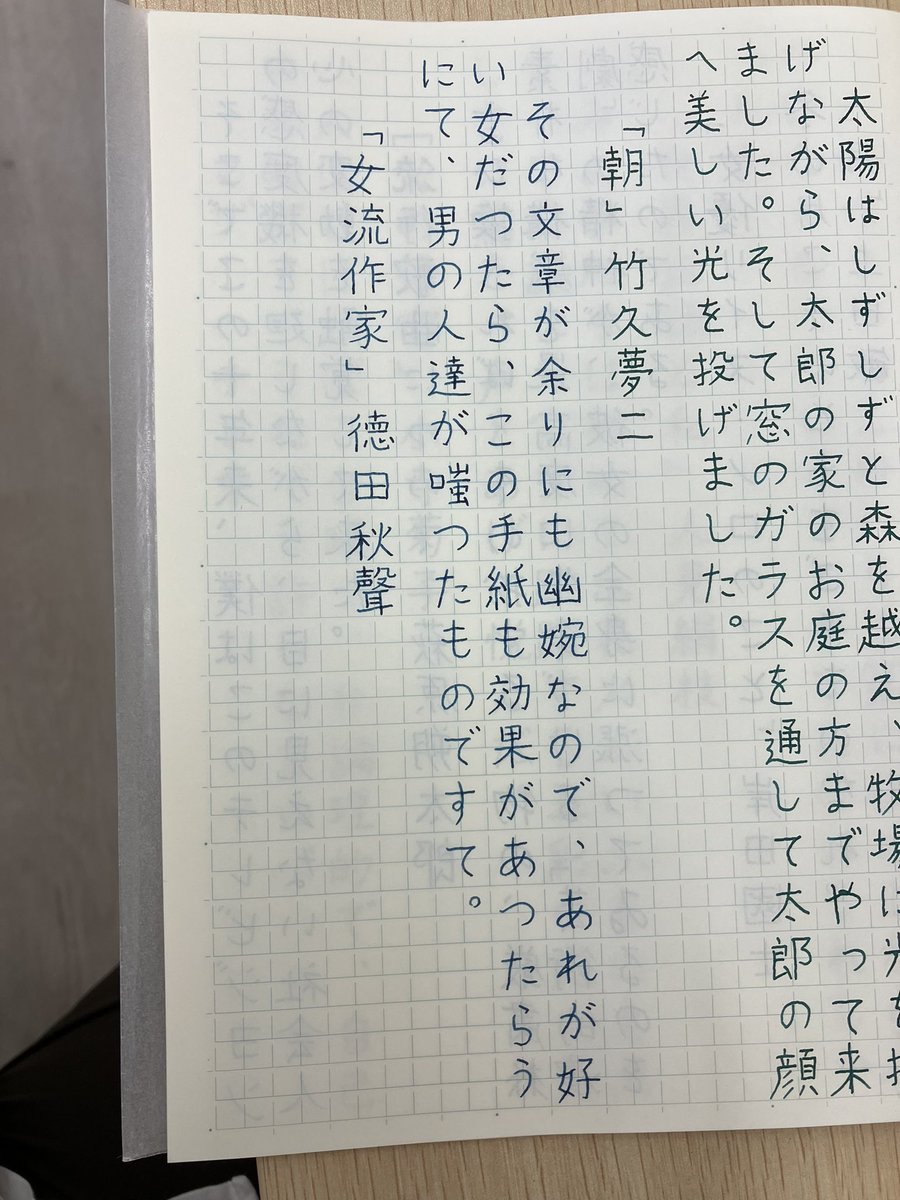 太陽はしずしずと森を越え、牧場に光を投
げながら、太郎の家のお庭の方までやって来
ました。そして窓のガラスを通して太郎の顔
へ美しい光を投げました。
「朝」 竹久夢二
その文章が余りにも幽婉なので、あれが好
い女だつたら、この手紙も効果があつたらう
にて、男の人達が嗤つたものですて。
「女流作家」 徳田秋聲